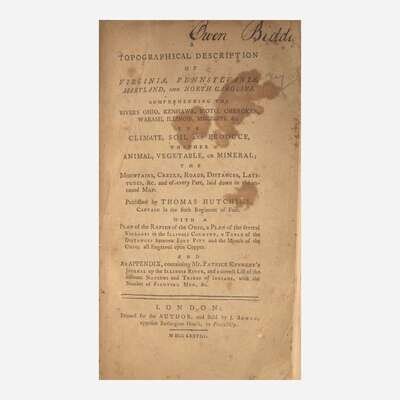 Owen Biddl
A
TOPOGRAPHICAL DESCRIPTION
OF
VIRGINIA, PENNSYLVANIA,
MARYLAND, AND NORTH CAROLINA,
COMPREHENDING THE
RIVERS OHIO, KENHAWA, SIOTO, CHEROKEE,
WABASH, ILLINOIS, MISSISIPPI, &c.
THE
CLIMATE, SOIL AND PRODUCE,
WHETHER
ANIMAL, VEGETABLE, OR MINERAL;
THE
MOUNTAINS, CREEKS, ROADS, DISTANCES, LATI-
TUDES, &c. and of every Part, laid down in the an-
nexed MAP.
Published by THOMAS HUTCHINS,
CAPTAIN in the 60th Regiment of Foot.
WITH A
PLAN of the RAPIDS of the OHIO, a PLAN of the several
VILLAGES in the ILLINOIS COUNTRY, a TABLE of the
DISTANCES between FORT PITT and the Mouth of the
OHIO, all Engraved upon Copper.
AND
An APPENDIX, containing Mr. PATRICK KENNEDY's
JOURNAL up the ILLINOIS RIVER, and a correct List of the
different NATIONS and TRIBES of INDIANS, with the
Number of FIGHTING MEN, &c.
LONDON:
Printed for the AUTHOR, and Sold by J. ALMON,
opposite Burlington House, in Piccadilly.
MDCCLXXVIII.